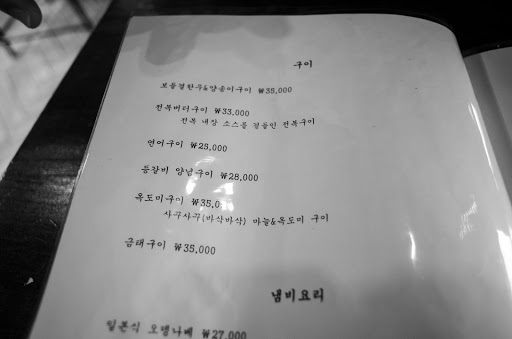 구이
보들결한우&양송이구이 ₩35,000
전복버터구이 ₩33,000
전복 내장 소스를 곁들인 전복구이
연어구이 ₩25,000
등갈비 양념구이 ₩28,000
옥도미구이 ₩35,0
사쿠사쿠(바삭바삭) 마늘&옥도미 구이
금태구이 ₩35,000
냄비요리
일본식 오뎅나베 ₩27,000